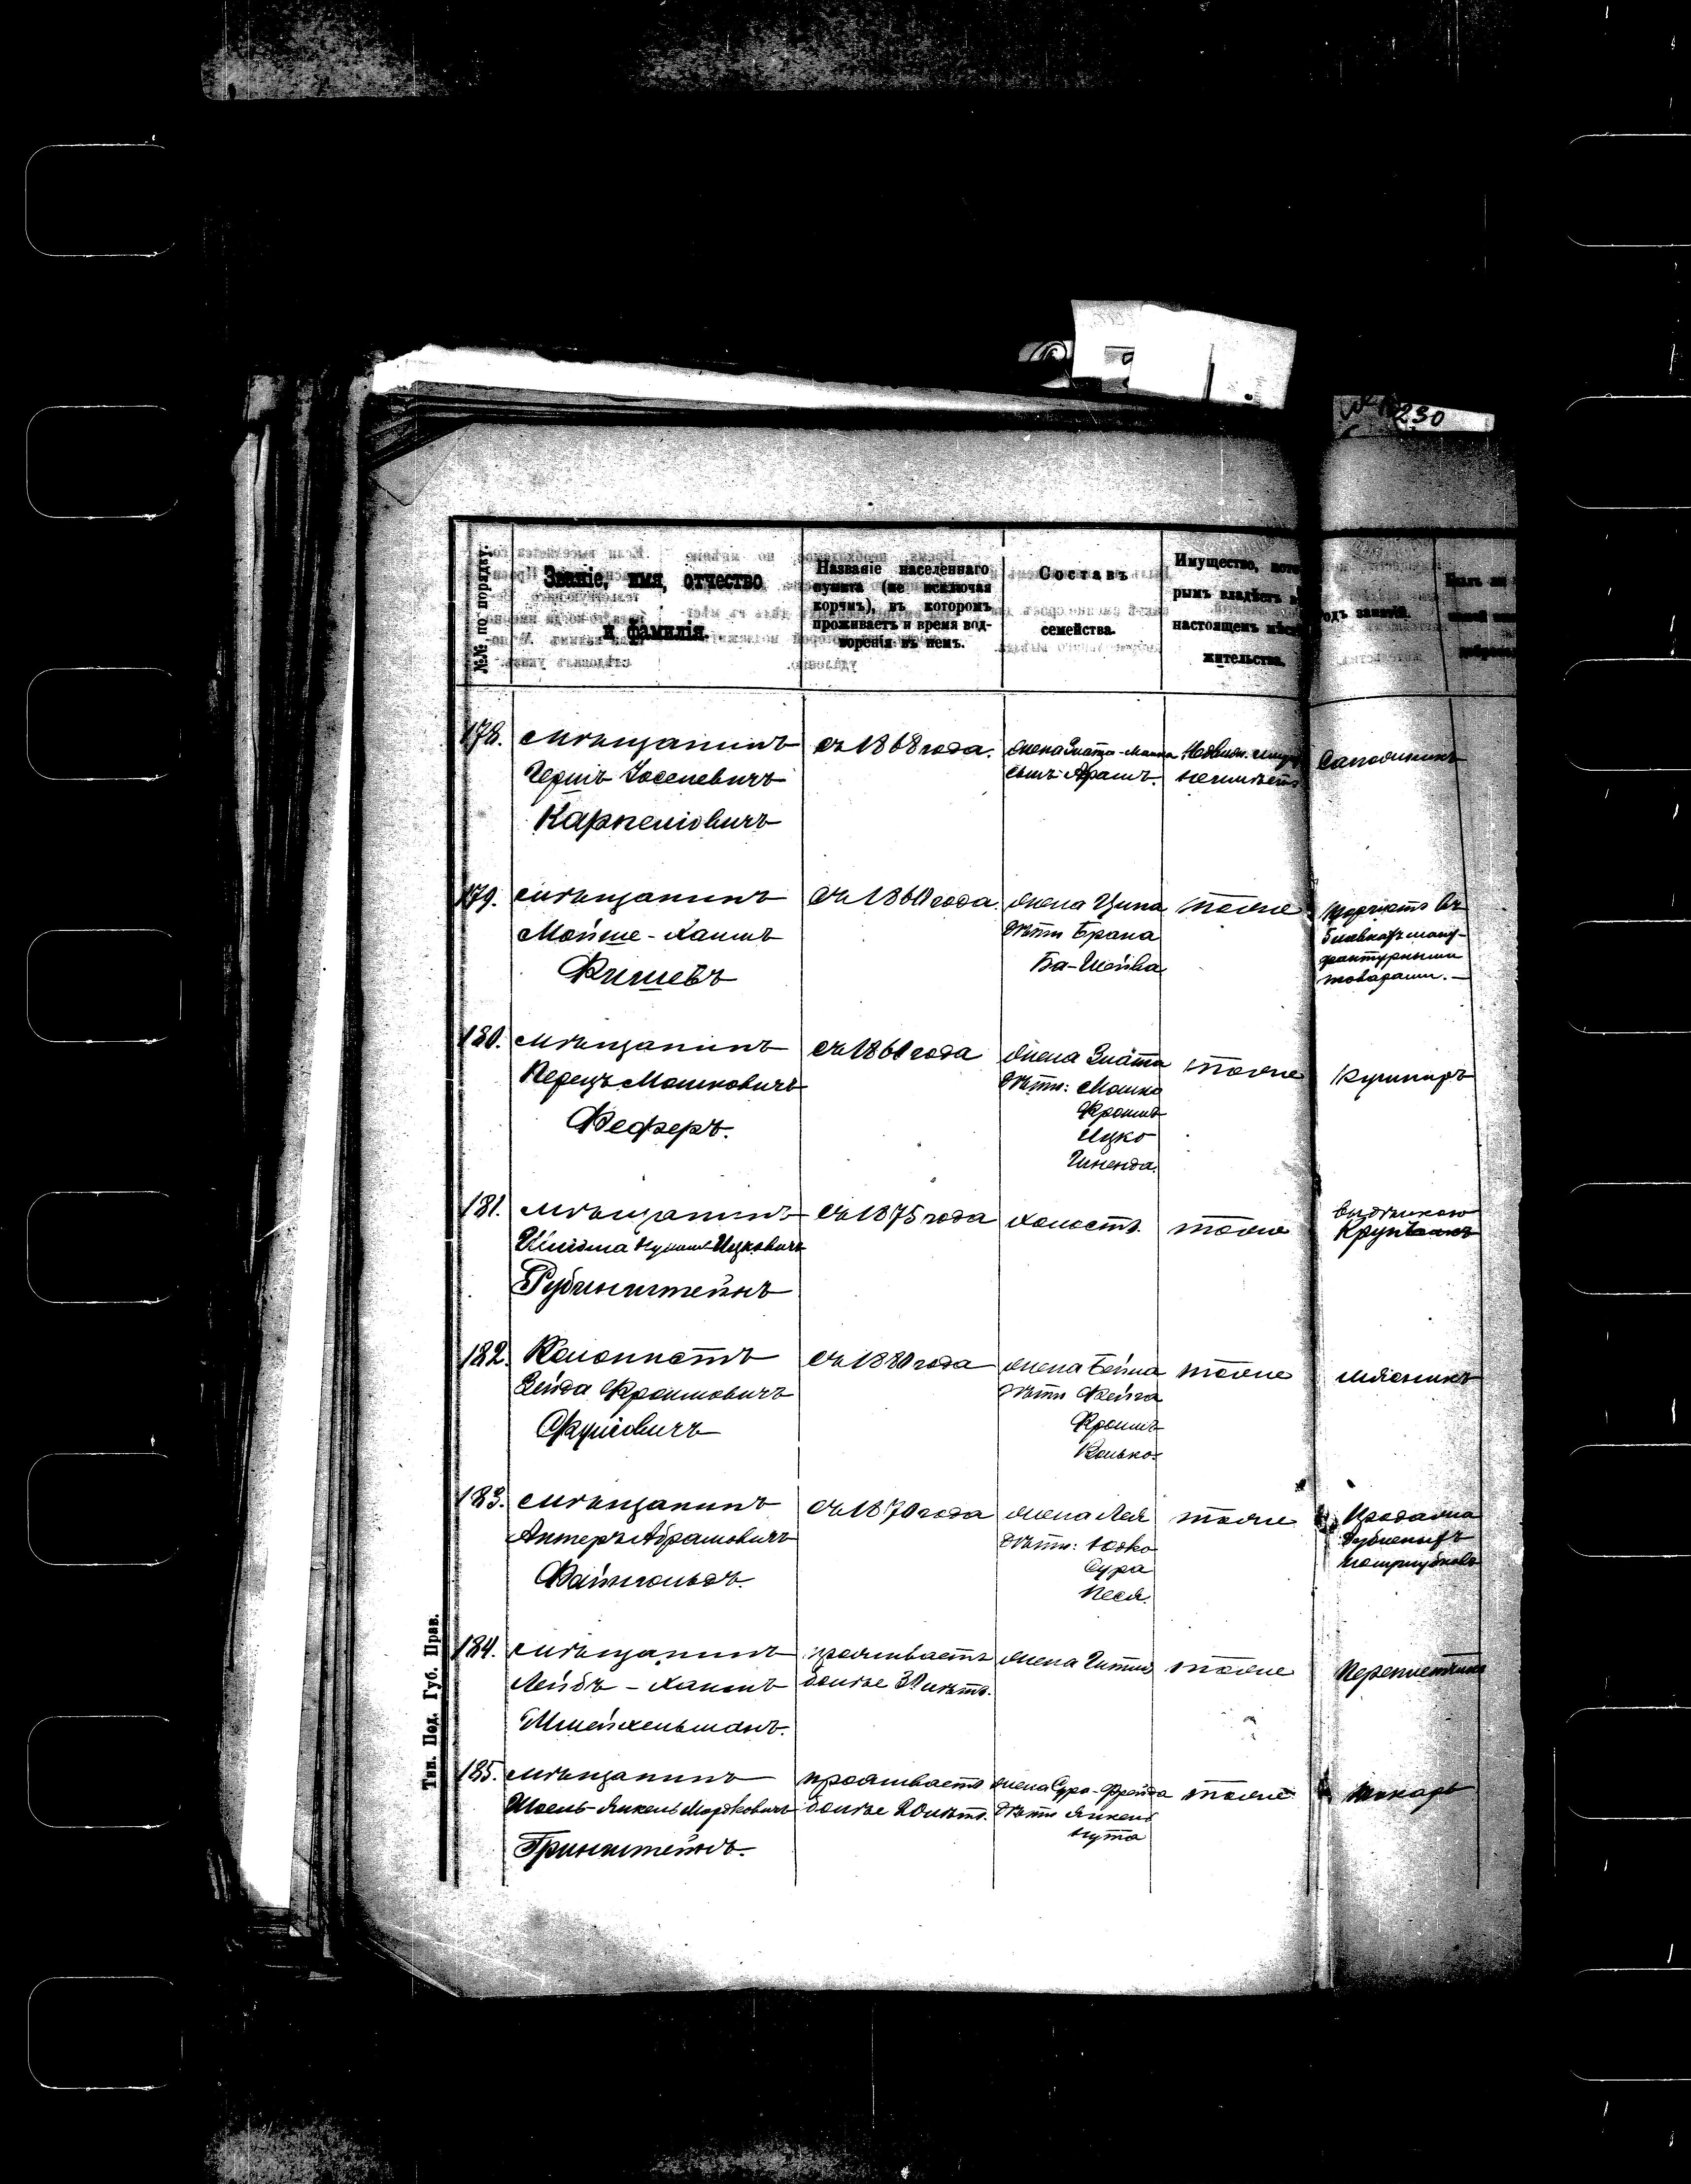 230
№№ по порядку.
Званіе, имя, отчество
и фамилія.
Названіе населеннаго
пункта (не исключая
корчмъ), въ которомъ
проживаетъ и время вод-
воренія въ немъ.
Составъ
семейства.
Имущество, кото
рымъ владѣетъ в
настоящемъ мѣст
жительства.
одъ занятій.
178.
мѣщанинъ
Гершъ Іоселевичъ
Карпеловичъ
съ 1868 года.
жена Злата
сынъ Арамъ.
Недвиж. имущ
неимѣетъ
Сапожникъ
179.
мѣщанинъ
Мойше-Хаимъ
Фишевъ
съ 1860 года.
жена Ципа
дѣти Брана
Ба-Шейва
тоже
торгуетъ въ
лавкахъ ману-
фактурными
товарами.
180.
мѣщанинъ
Перецъ Мошковичъ
Феферъ.
съ 1860 года
жена Злата
дѣти: Мошко
Фроимъ
Ицко
Гиненда.
тоже
Кушниръ
181.
мѣщанинъ
Ицковичъ
Рубинштейнъ
съ 1875 года
холостъ.
тоже
182.
Колонистъ
Зейда Фроимовичъ
съ 1880 года
жена Бейла
дѣти Фейга
Фроимъ
Волько.
тоже
мясникъ
183.
мѣщанинъ
Антеръ Абрамовичъ
Файнгольдъ.
съ 1870 года
жена Лея
дѣти: Іодко
Сура
Песя.
тоже
Продажа
184.
мѣщанинъ
Лейбъ-Хаимъ
Шнейхельманъ.
проживаетъ
болѣе 30 лѣтъ.
жена Гитля
тоже
Переплетчикъ
185.
мѣщанинъ
Шоель-Янкель Мордковичъ
Гринштейнъ.
проживаетъ
болѣе 20 лѣтъ.
жена Сура-Фрейда
дѣти Янкель
Нута
тоже
токарь
Тип. Под. Губ. Прав.